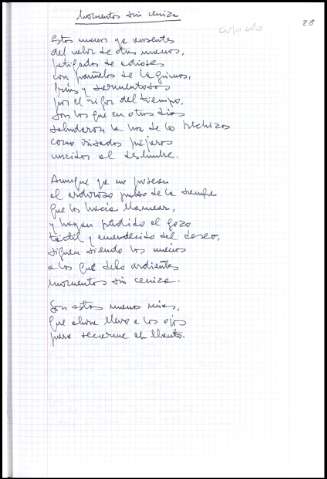 Momentos sin ceniza
copiado
28
Estas manos ya ausentes
del calor de otras manos,
fatigadas de adioses
con pañuelos de lágrimas,
frías y sarmentosas
por el rigor del tiempo,
son las que en otros días
saludaron la luz de los
como pájaros
uncidos al deslumbre.
Aunque ya no posean
el ardoroso pulso de la sangre
que las hacía llamear,
y hayan perdido el gozo
táctil y enardecido del deseo,
siguen siendo las manos
a las que debo ardientes
momentos sin ceniza.
Son estas manos mías,
que ahora llevo a los ojos
para secarme el llanto.